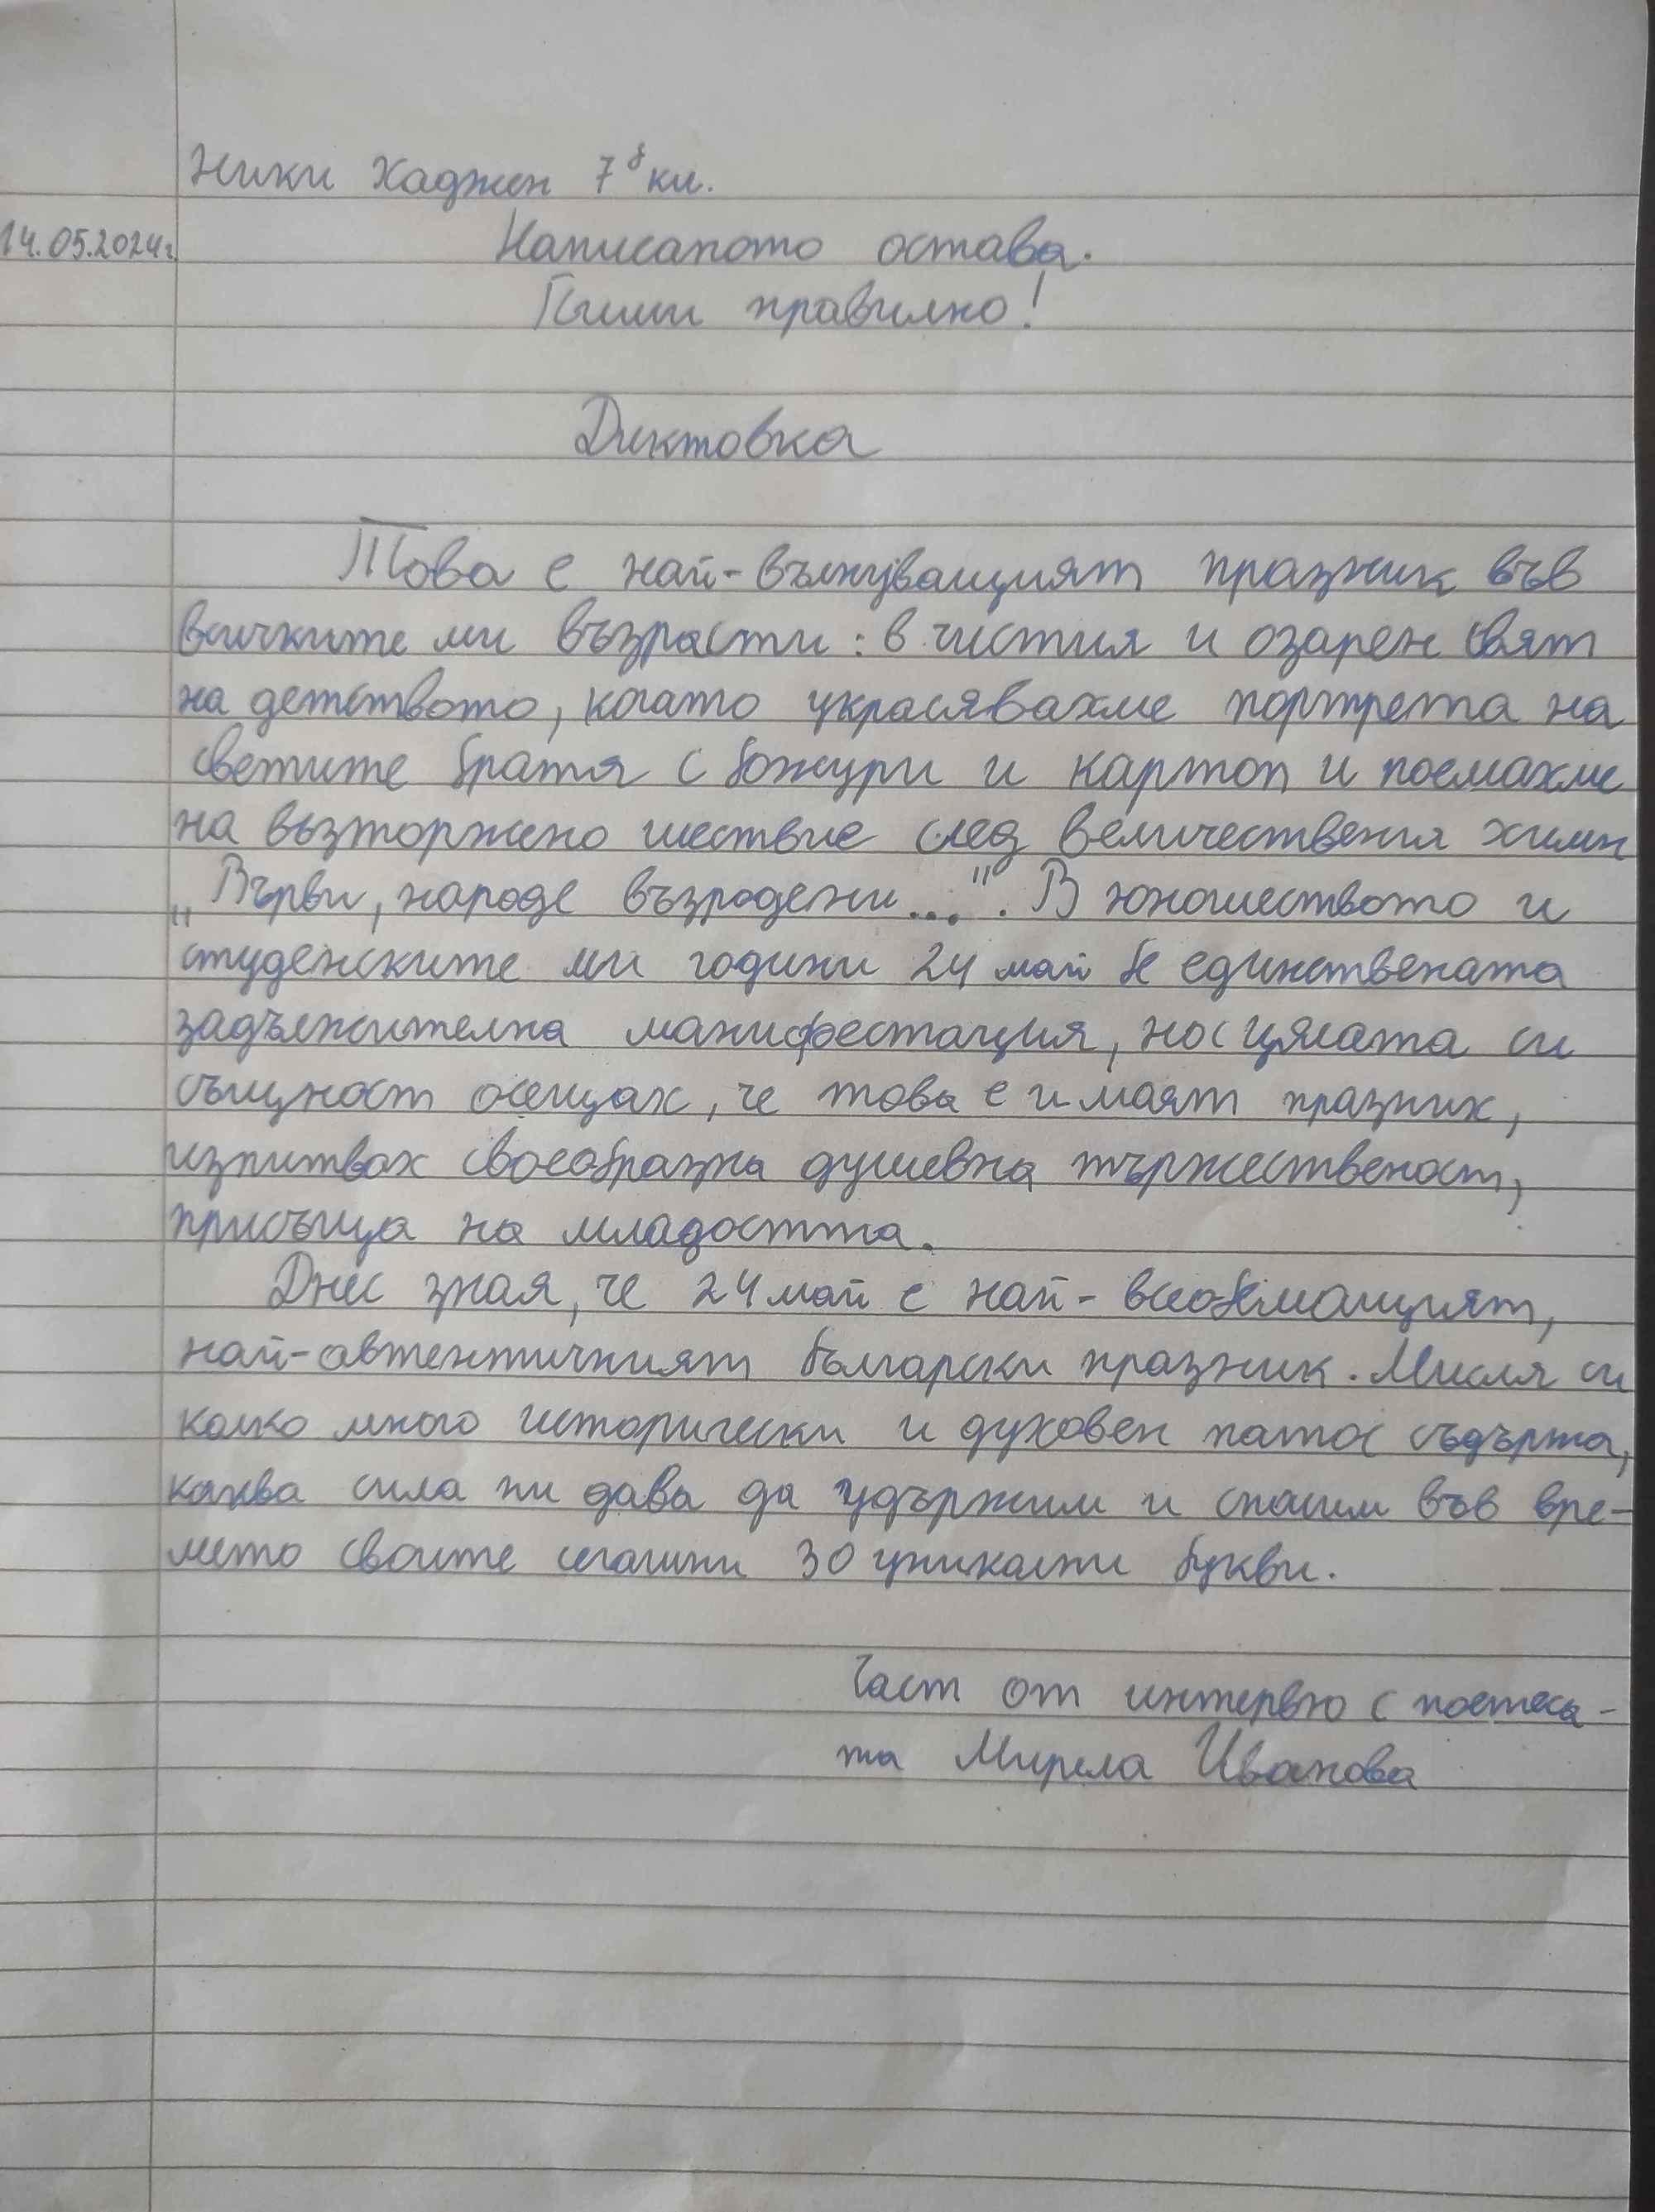 Ники Хаджиен 7б кл.
14.05.2024г. Написаното остава.
Пиши правилно!
Диктовка
Това е най-вълнуващият празник във
всичките ми възрасти: в чистия и озарен свят
на детството, когато украсявахме портрета на
светите братя с божури и картон и поемахме
на възторжено шествие след величествения химн
„Върви, народе възродени...". В юношеството и
студенските ми години 24 май бе единствената
задължителна манифестация, но с цялата си
същност осещах, че това е и моят празник,
изпитвах своеобразна душевна тържественост,
присъща на младостта.
Днес зная, че 24 май е най-всеобемащият,
най-автентичният български празник. Мисля си
колко много исторически и духовен патос съдържа,
каква сила ни дава да удържим и спасим във вре-
мето своите сегашни 30 уникални букви.
Част от интервю с поетеса-
та Мирела Иванова